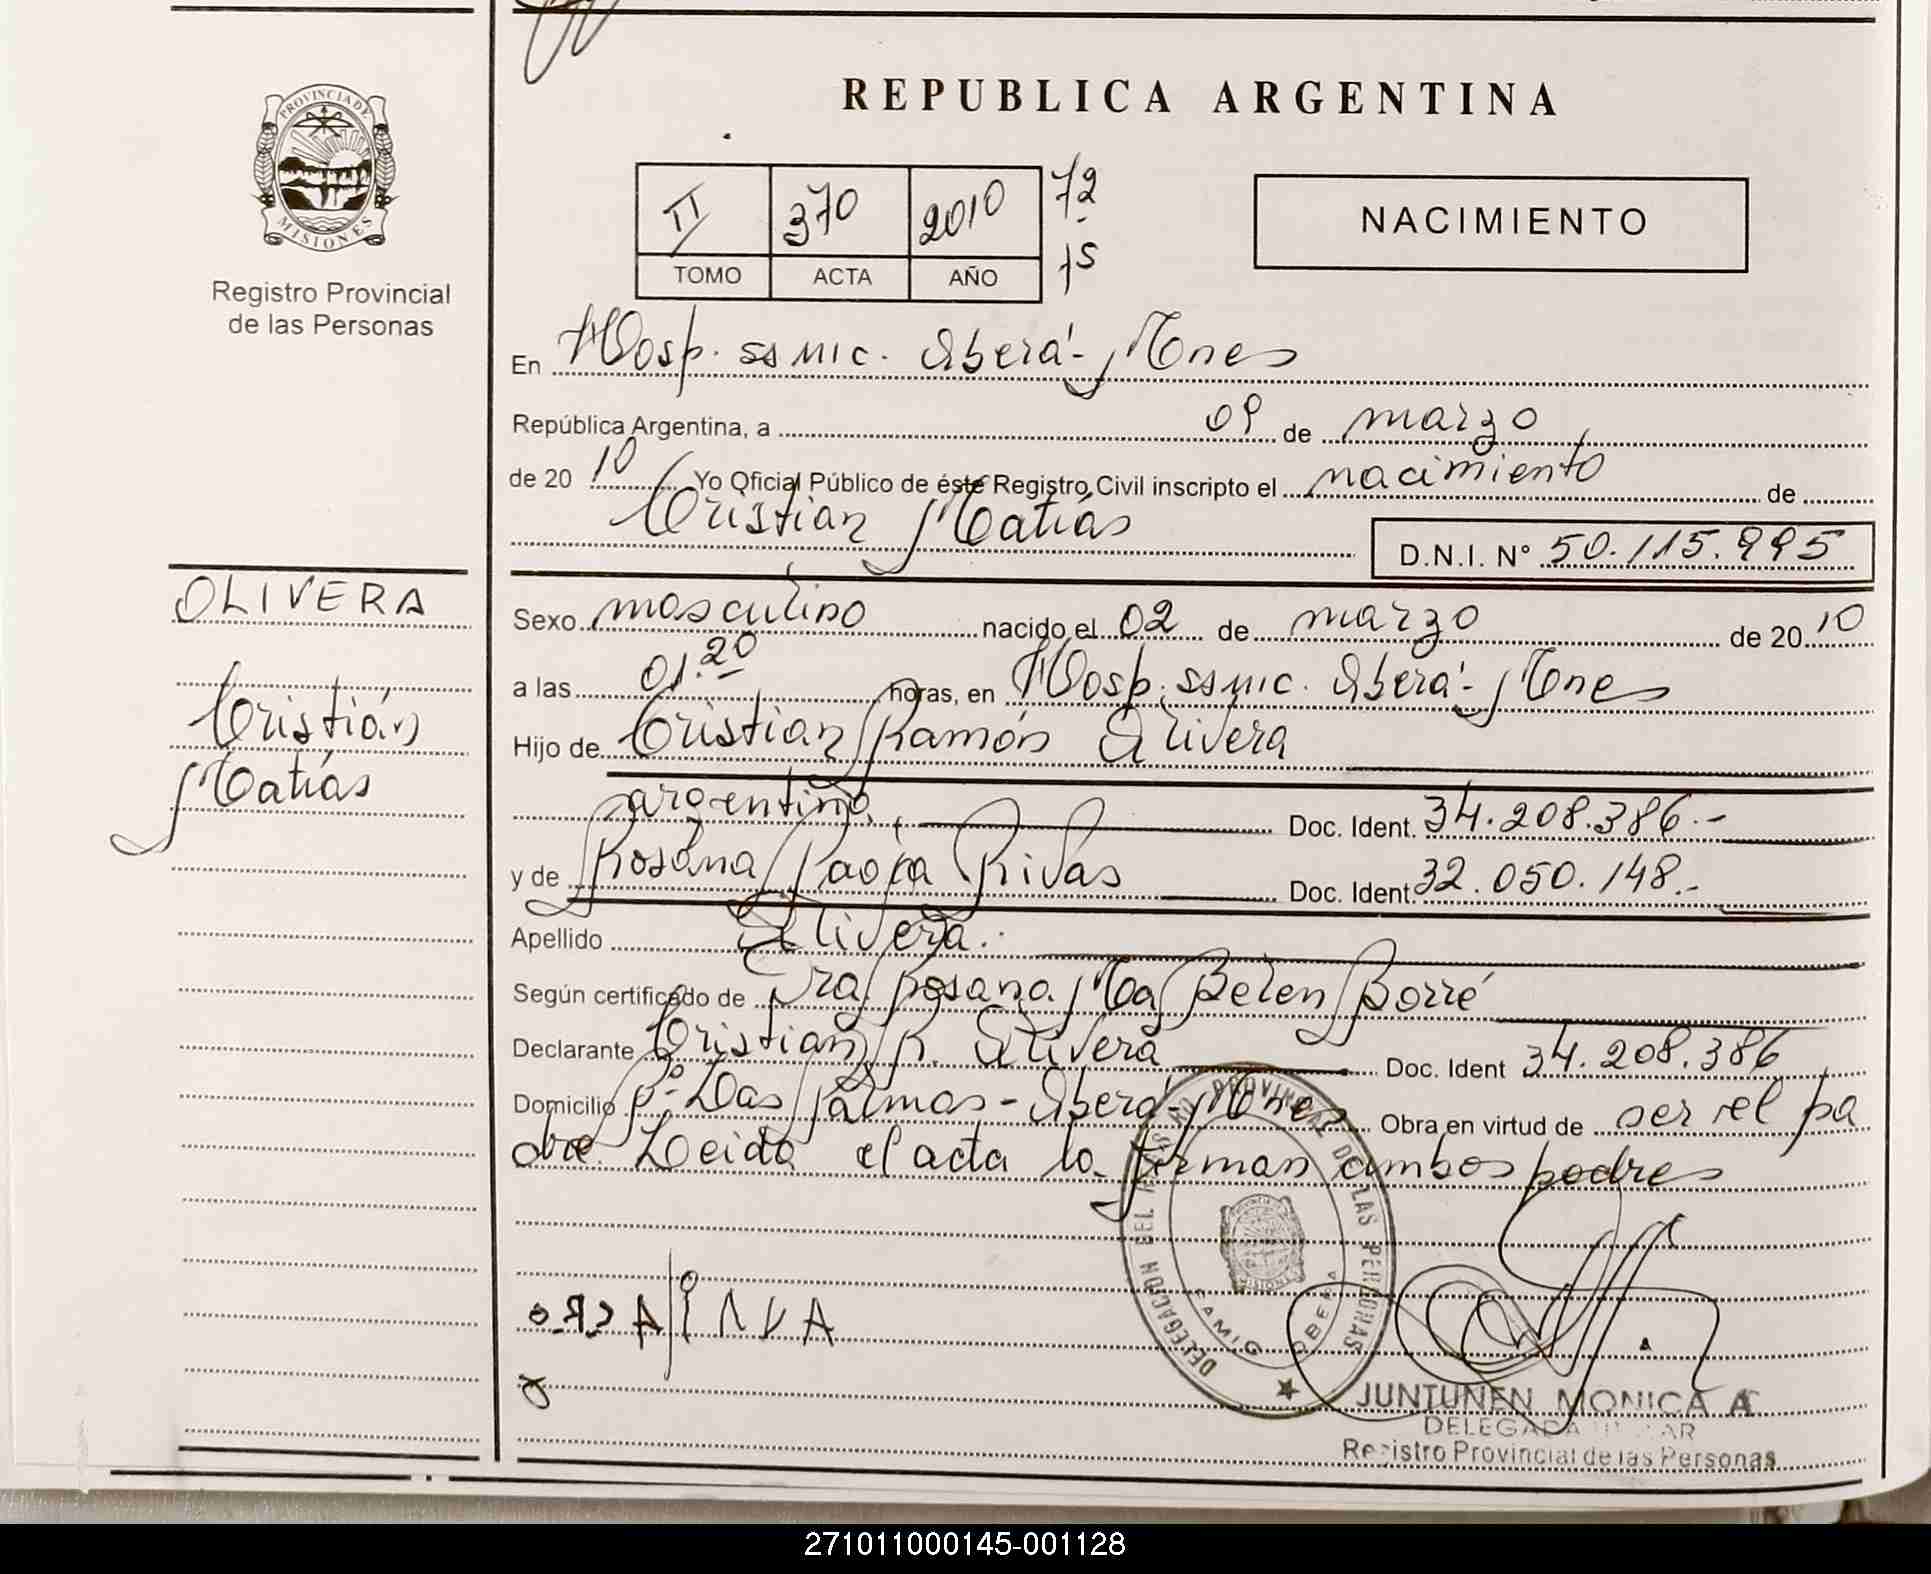 REPUBLICA ARGENTINA
PROVINCIA DE
MISIONES
Registro Provincial
de las Personas
II 370 2010 72
TOMO ACTA AÑO 15
NACIMIENTO
En Hosp. ss mic. Oberá - Mnes
República Argentina, a 09 de marzo
de 20 10 Yo Oficial Público de éste Registro Civil inscripto el nacimiento de
Cristian Matías
D.N.I. Nº 50.115.995
OLIVERA
Cristián
Matías
Sexo masculino nacido el 02 de marzo de 20 10
a las 01.20 horas, en Hosp. ss mic. Oberá - Mnes
Hijo de Cristian Ramón Olivera
argentino, Doc. Ident. 34.208.386.-
y de Rosana Paola Rivas Doc. Ident. 32.050.148.-
Apellido Olivera.
Según certificado de Dra Rosana Ma Belen Borré
Declarante Cristian R. Olivera Doc. Ident 34.208.386
Domicilio Bº Las Palmas - Oberá - Mnes Obra en virtud de ser el pa
dre Leida el acta la firman ambos padres
DELEGACION DEL REGISTRO PROVINCIAL DE LAS PERSONAS
SAMIC OBERA
JUNTUNEN MONICA A
DELEGADA
Registro Provincial de las Personas
271011000145-001128